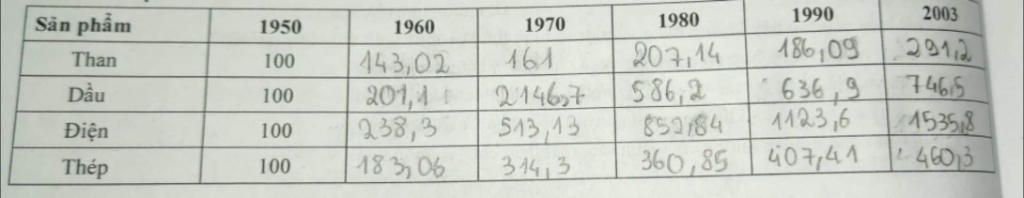 Sản phẩm 1950 1960 1970 1980 1990 2003
Than 100 143,02 161 207,14 186,09 291,2
Dầu 100 201,1 2146,7 586,2 636,9 746,5
Điện 100 238,3 513,13 852,84 1123,6 1535,8
Thép 100 183,06 314,3 360,85 407,41 460,3